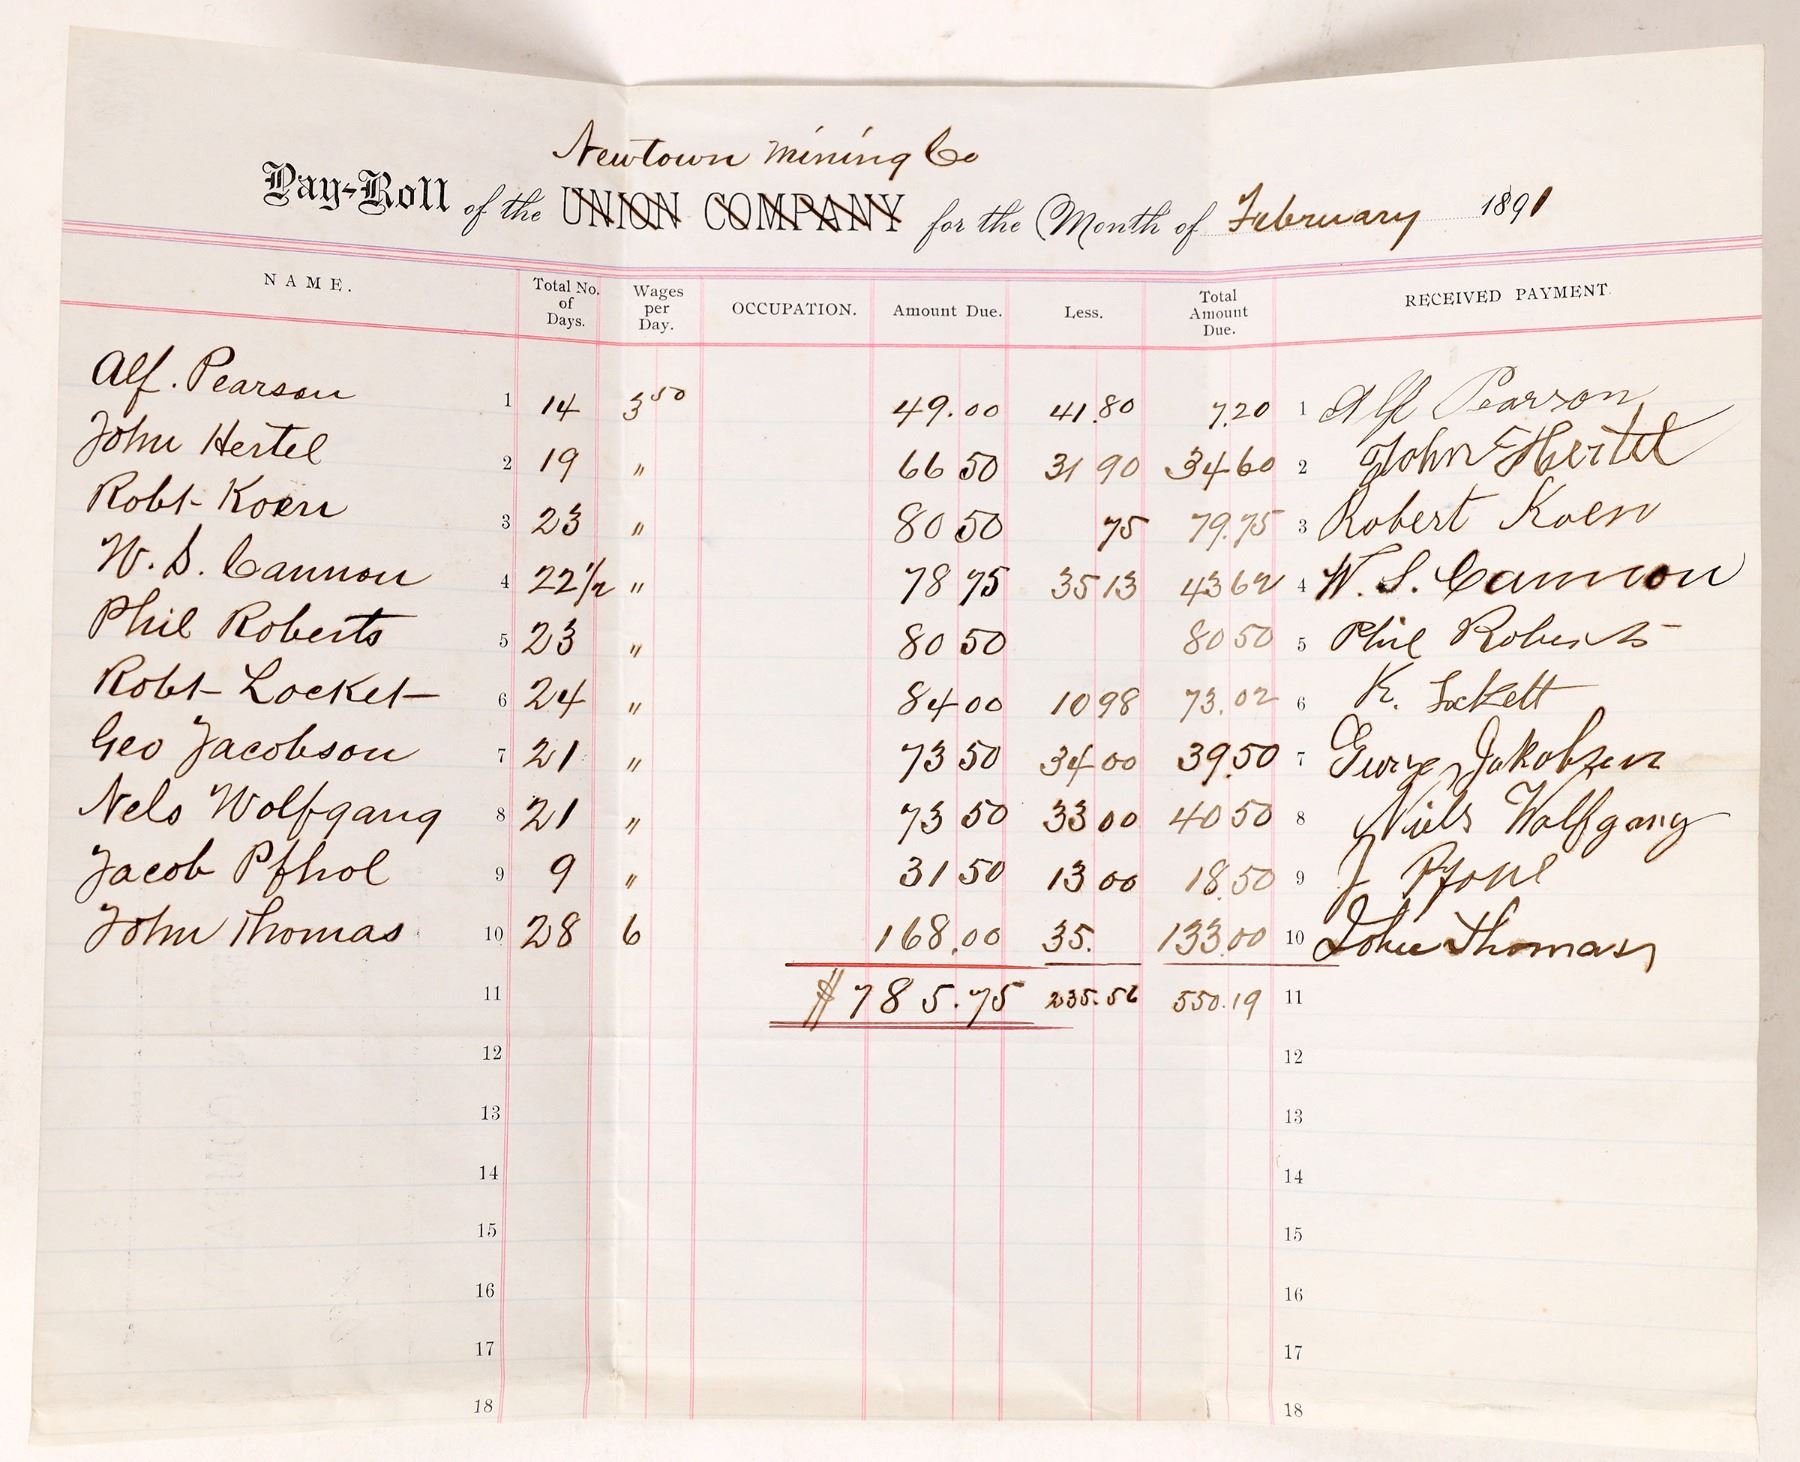 Newtown Mining Co
Pay-Roll of the UNION COMPANY for the Month of February 1891
NAME. Total No. of Days. Wages per Day. OCCUPATION. Amount Due. Less. Total Amount Due. RECEIVED PAYMENT.
Alf. Pearson 1 14 3 50 49.00 41.80 7.20 1 Alf Pearson
John Hertel 2 19 " 66 50 31 90 34 60 2 John Hertel
Robt Koen 3 23 " 80 50 75 79.75 3 Robert Koen
W. S. Cannon 4 22 1/2 " 78 75 35 13 43 62 4 W. S. Cannon
Phil Roberts 5 23 " 80 50 80 50 5 Phil Roberts
Robt Locket 6 24 " 84 00 10 98 73.02 6 R. Lockett
Geo Jacobson 7 21 " 73 50 34 00 39.50 7 George Jakobsen
Nels Wolfgang 8 21 " 73 50 33 00 40 50 8 Niels Wolfgang
Jacob Pfhol 9 9 " 31 50 13 00 18.50 9 J
John Thomas 10 28 6 168.00 35. 133.00 10 John Thomas
11 $785.75 235.56 550.19 11
12 12
13 13
14 14
15 15
16 16
17 17
18 18